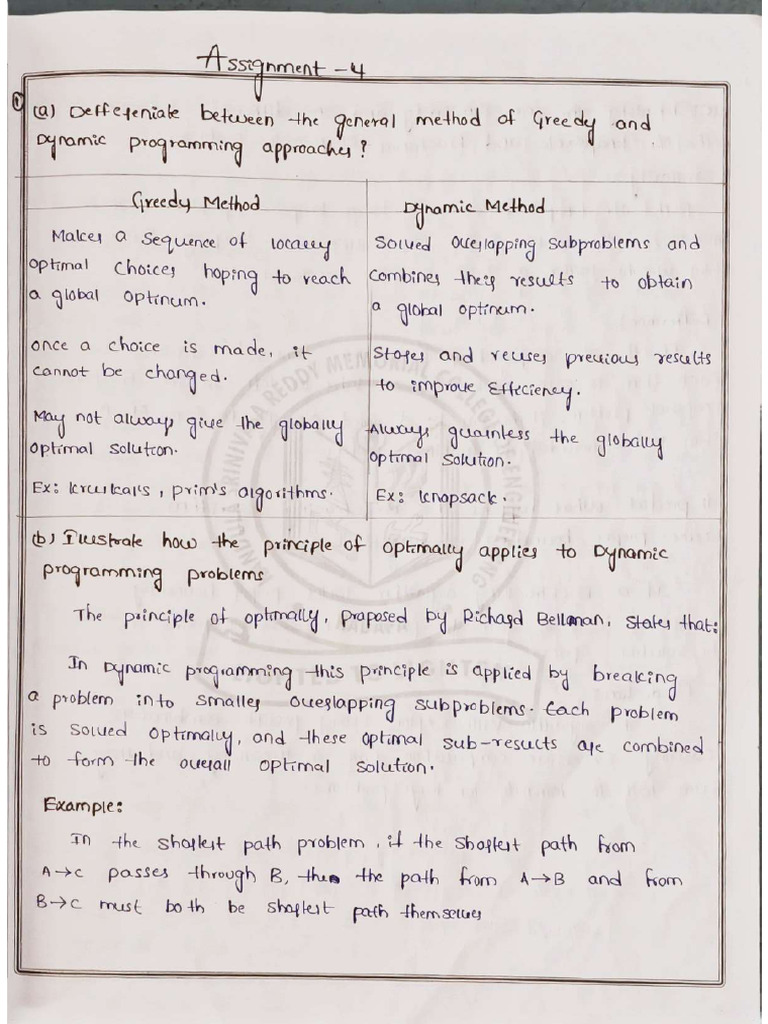 Assignment - 4
1) (a) Deffereniate between the general method of Greedy and
Dynamic programming approaches?
Greedy Method
Makes a sequence of locally
optimal choices hoping to reach
a global optinum.
once a choice is made, it
cannot be changed.
May not always give the globally
optimal solution.
Ex: kruskal's, prim's algorithms.
Dynamic Method
Solved overlapping subproblems and
combines their results to obtain
a global optinum.
Stores and reuses previous results
to improve Effeciency.
Always guainless the globally
optimal solution.
Ex: knapsack.
(b) Illustrate how the principle of optimally applies to Dynamic
programming problems
The principle of optimally, proposed by Richard Bellman, states that:
In Dynamic programming this principle is applied by breaking
a problem into smaller overlapping subproblems. Each problem
is solved optimally, and these optimal sub-results are combined
to form the overall optimal solution.
Example:
In the shortest path problem, if the shortest path from
A→C passes through B, then the path from A→B and from
B→C must both be shortest path themselves